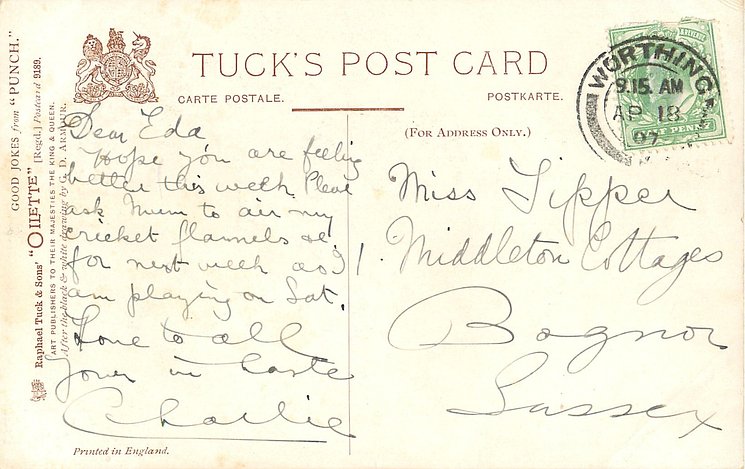 TUCK'S POST CARD
CARTE POSTALE.
POSTKARTE.
(FOR ADDRESS ONLY.)
GOOD JOKES from "PUNCH."
Raphael Tuck & Sons' "OILETTE" [Regd.] Postcard 9189.
ART PUBLISHERS TO THEIR MAJESTIES THE KING & QUEEN.
After the black & white drawing by G. D. ARMOUR.
WORTHING
9.15. AM
AP 18
07
Dear Eda
Hope you are feeling
better this week. Please
ask Mum to air my
cricket flannels &c
for next week as I
am playing on Sat.
Love to all
Yours in haste
Charlie
Miss Tipper
1. Middleton Cottages
Bognor
Sussex
Printed in England.